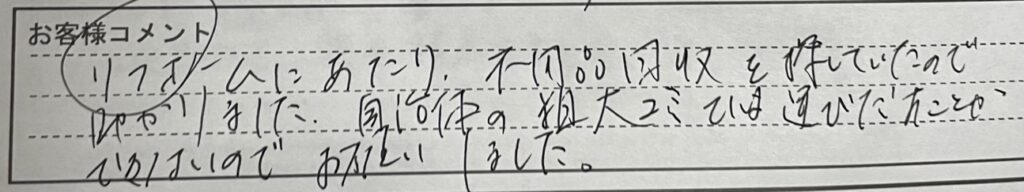 お客様コメント
リフォームにあたり、不用品回収を探していたので
ました。自治体の粗大ゴミでは運びだすことが
できないのでお願いしました。